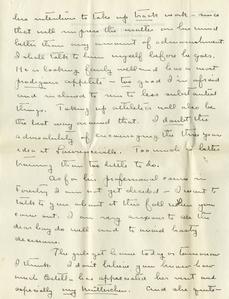 his intention to take up track work - since
that will impress the matter on his mind
better than any amount of admonishment.
I shall talk to him myself before he goes.
He is looking fairly well and has a most
prodigious appetite - too good I'm afraid
and inclined to run to less substantial
things. Taking up athletics will also be
the best way around that. I doubt the
advisability of encouraging the three year
idea at Lawrenceville. Too much is better
training than too little to do.
As for his professional course in
Forestry I am not yet decided - I want to
talk to you about it this fall when you
come out. I am very anxious to see the
dear boy do well and to avoid hasty
decisions.
The girls get home today or tomorrow
I think. I don't believe you know how
much Estell has appreciated her visit and
especially my Mütterchen. And she